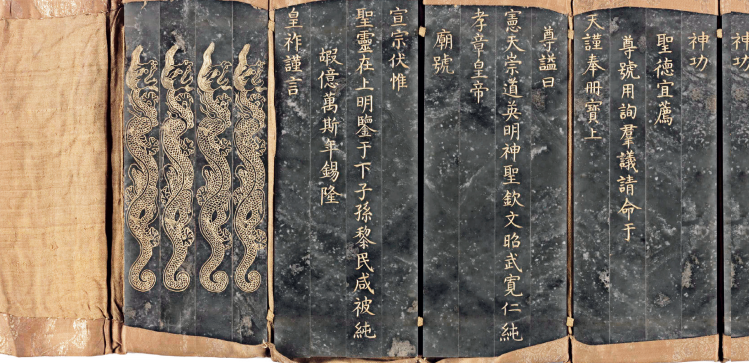 神功
神功
聖德宜薦
尊號用詢羣議請命于
天謹奉冊寶上
尊謚曰
憲天崇道英明神聖欽文昭武寬仁純
孝章皇帝
廟號
宣宗伏惟
聖靈在上明鑒于下子孫黎民咸被純
嘏億萬斯年錫隆
皇祚謹言